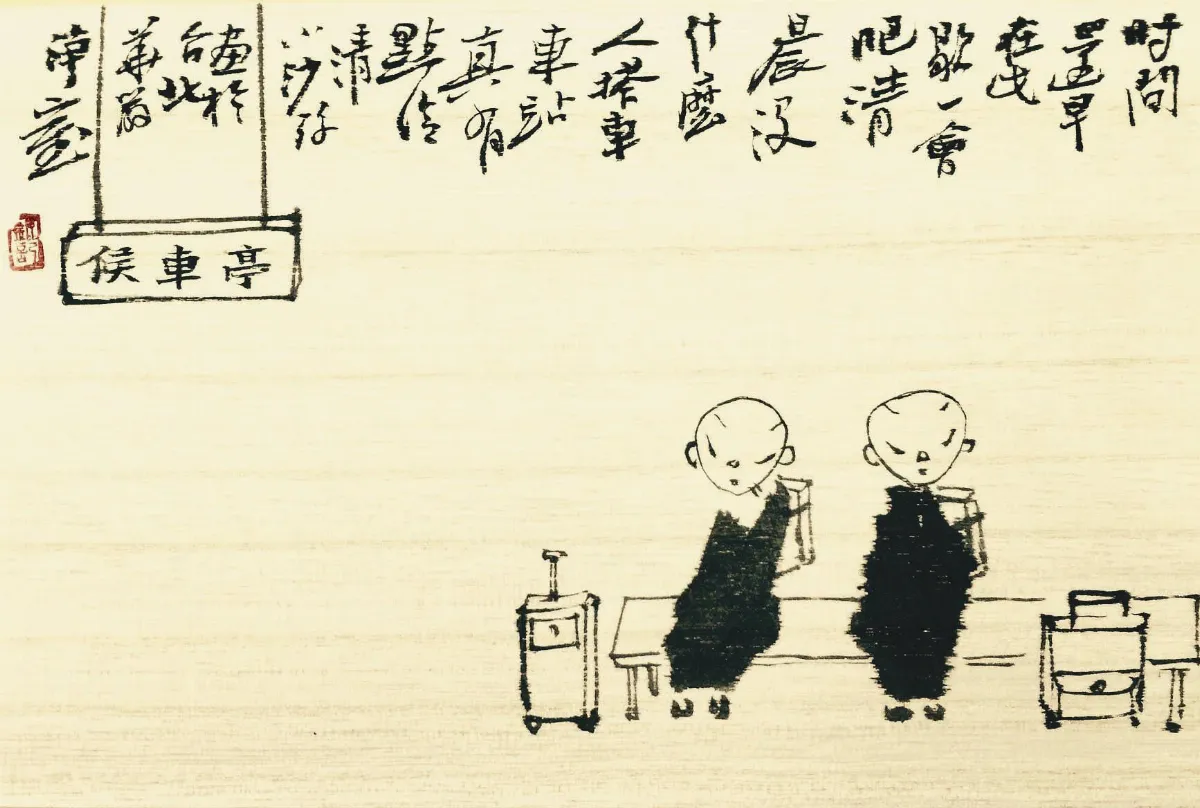 时間
還早
在此
歇一會
吧清
晨没
什麼
人搭車
車站
真有
點冷
清
小沙弥
畫於
台北
候車亭